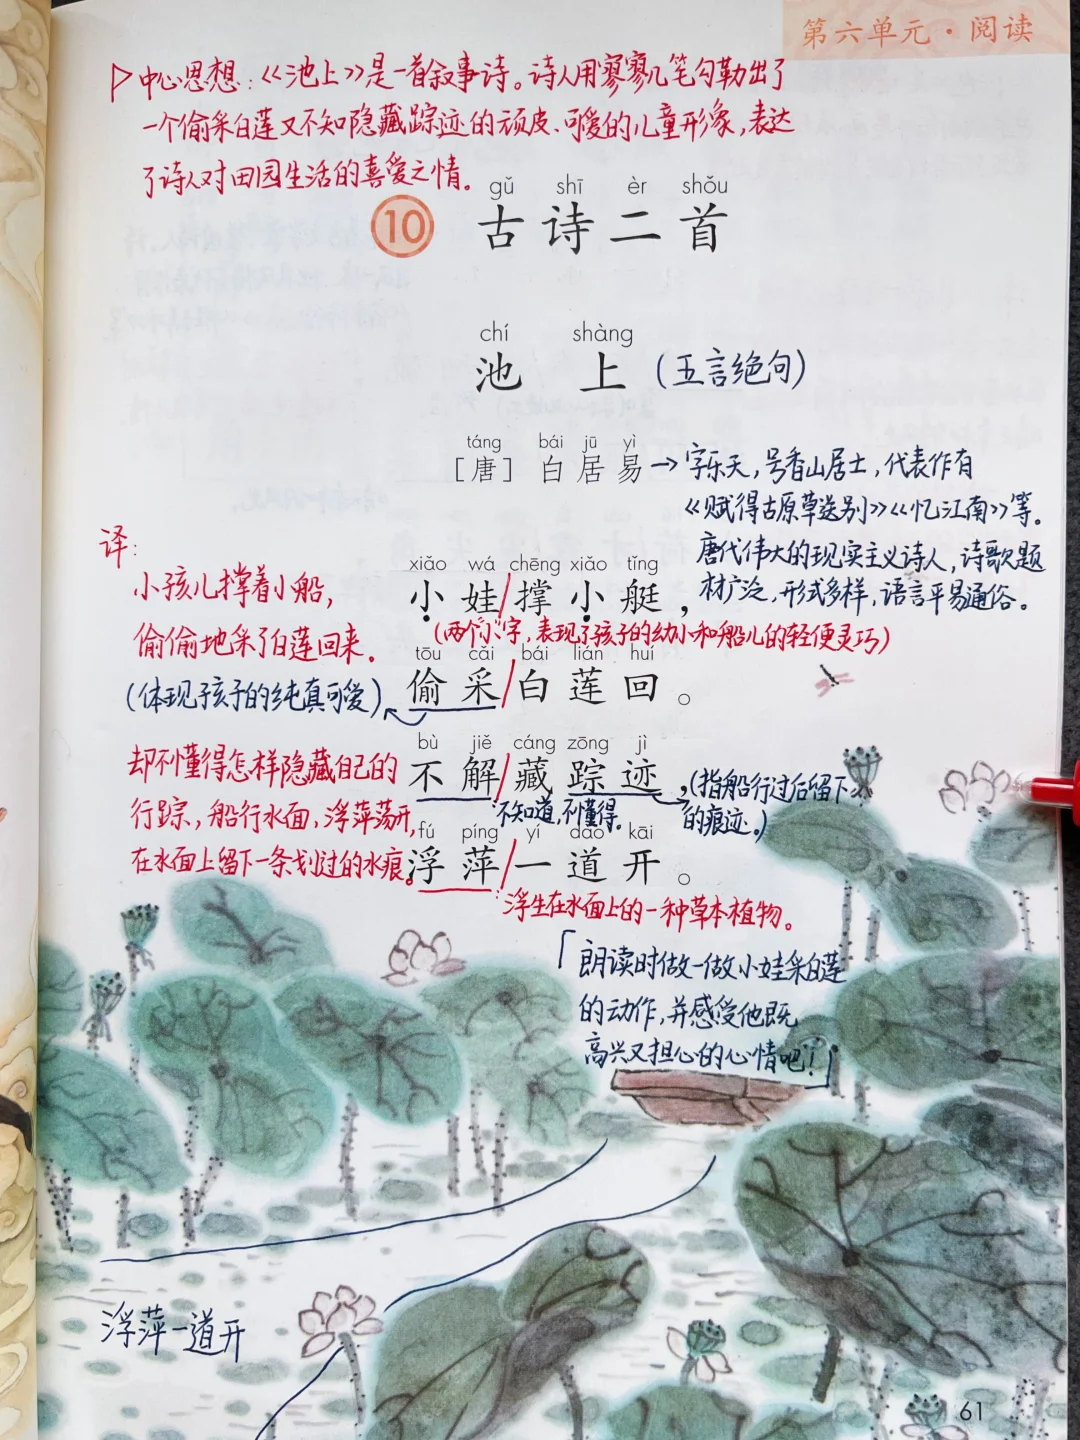 第六单元·阅读
中心思想：《池上》是一首叙事诗。诗人用寥寥几笔勾勒出了
一个偷采白莲又不知隐藏踪迹的顽皮、可爱的儿童形象，表达
了诗人对田园生活的喜爱之情。
gǔ shī èr shǒu
10 古诗二首
chí shàng
池上（五言绝句）
táng bái jū yì
［唐］白居易→字乐天，号香山居士，代表作有
《赋得古原草送别》《忆江南》等。
唐代伟大的现实主义诗人，诗歌题
材广泛，形式多样，语言平易通俗。
译：
小孩儿撑着小船，
偷偷地采了白莲回来。
（体现孩子的纯真可爱）
xiǎo wá chēng xiǎo tǐng
小娃/撑小艇，
（两个“小”字，表现了孩子的幼小和船儿的轻便灵巧）
tōu cǎi bái lián huí
偷采/白莲回。
却不懂得怎样隐藏自己的
行踪，船行水面，浮萍荡开，
在水面上留下一条划过的水痕。
bù jiě cáng zōng jì
不解/藏踪迹，（指船行过后留下
的痕迹。）
：不知道，不懂得。
fú píng yí dào kāi
浮萍/一道开。
：浮生在水面上的一种草本植物。
「朗读时做一做小娃采白莲
的动作，并感受他既
高兴又担心的心情吧！」
浮萍一道开
61